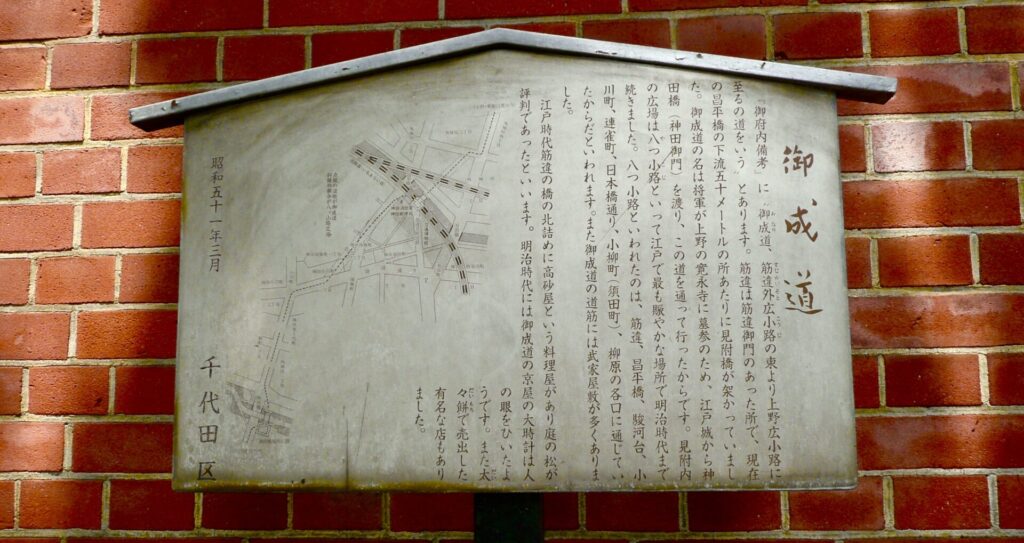 御成道
『御府内備考』に〝御成道、筋違外広小路の東より上野広小路に
至るの道をいう〟とあります。筋違は筋違御門のあった所で、現在
の昌平橋の下流五十メートルの所あたりに見附橋が架かっていまし
た。御成道の名は将軍が上野の寛永寺に墓参のため、江戸城から神
田橋（神田御門）を渡り、この道を通って行ったからです。見附内
の広場は八つ小路といって江戸で最も賑やかな場所で明治時代まで
続きました。八つ小路といわれたのは、筋違、昌平橋、駿河台、小
川町、連雀町、日本橋通り、小柳町（須田町）、柳原の各口に通じてい
たからだといわれます。また御成道の道筋には武家屋敷が多くありま
した。
江戸時代筋違の橋の北詰めに高砂屋という料理屋があり庭の松が
評判であったといいます。明治時代には御成道の京屋の大時計は人
の眼をひいたよ
うです。また太
々餅で売出した
有名な店もあり
ました。
昭和五十一年三月
千代田区